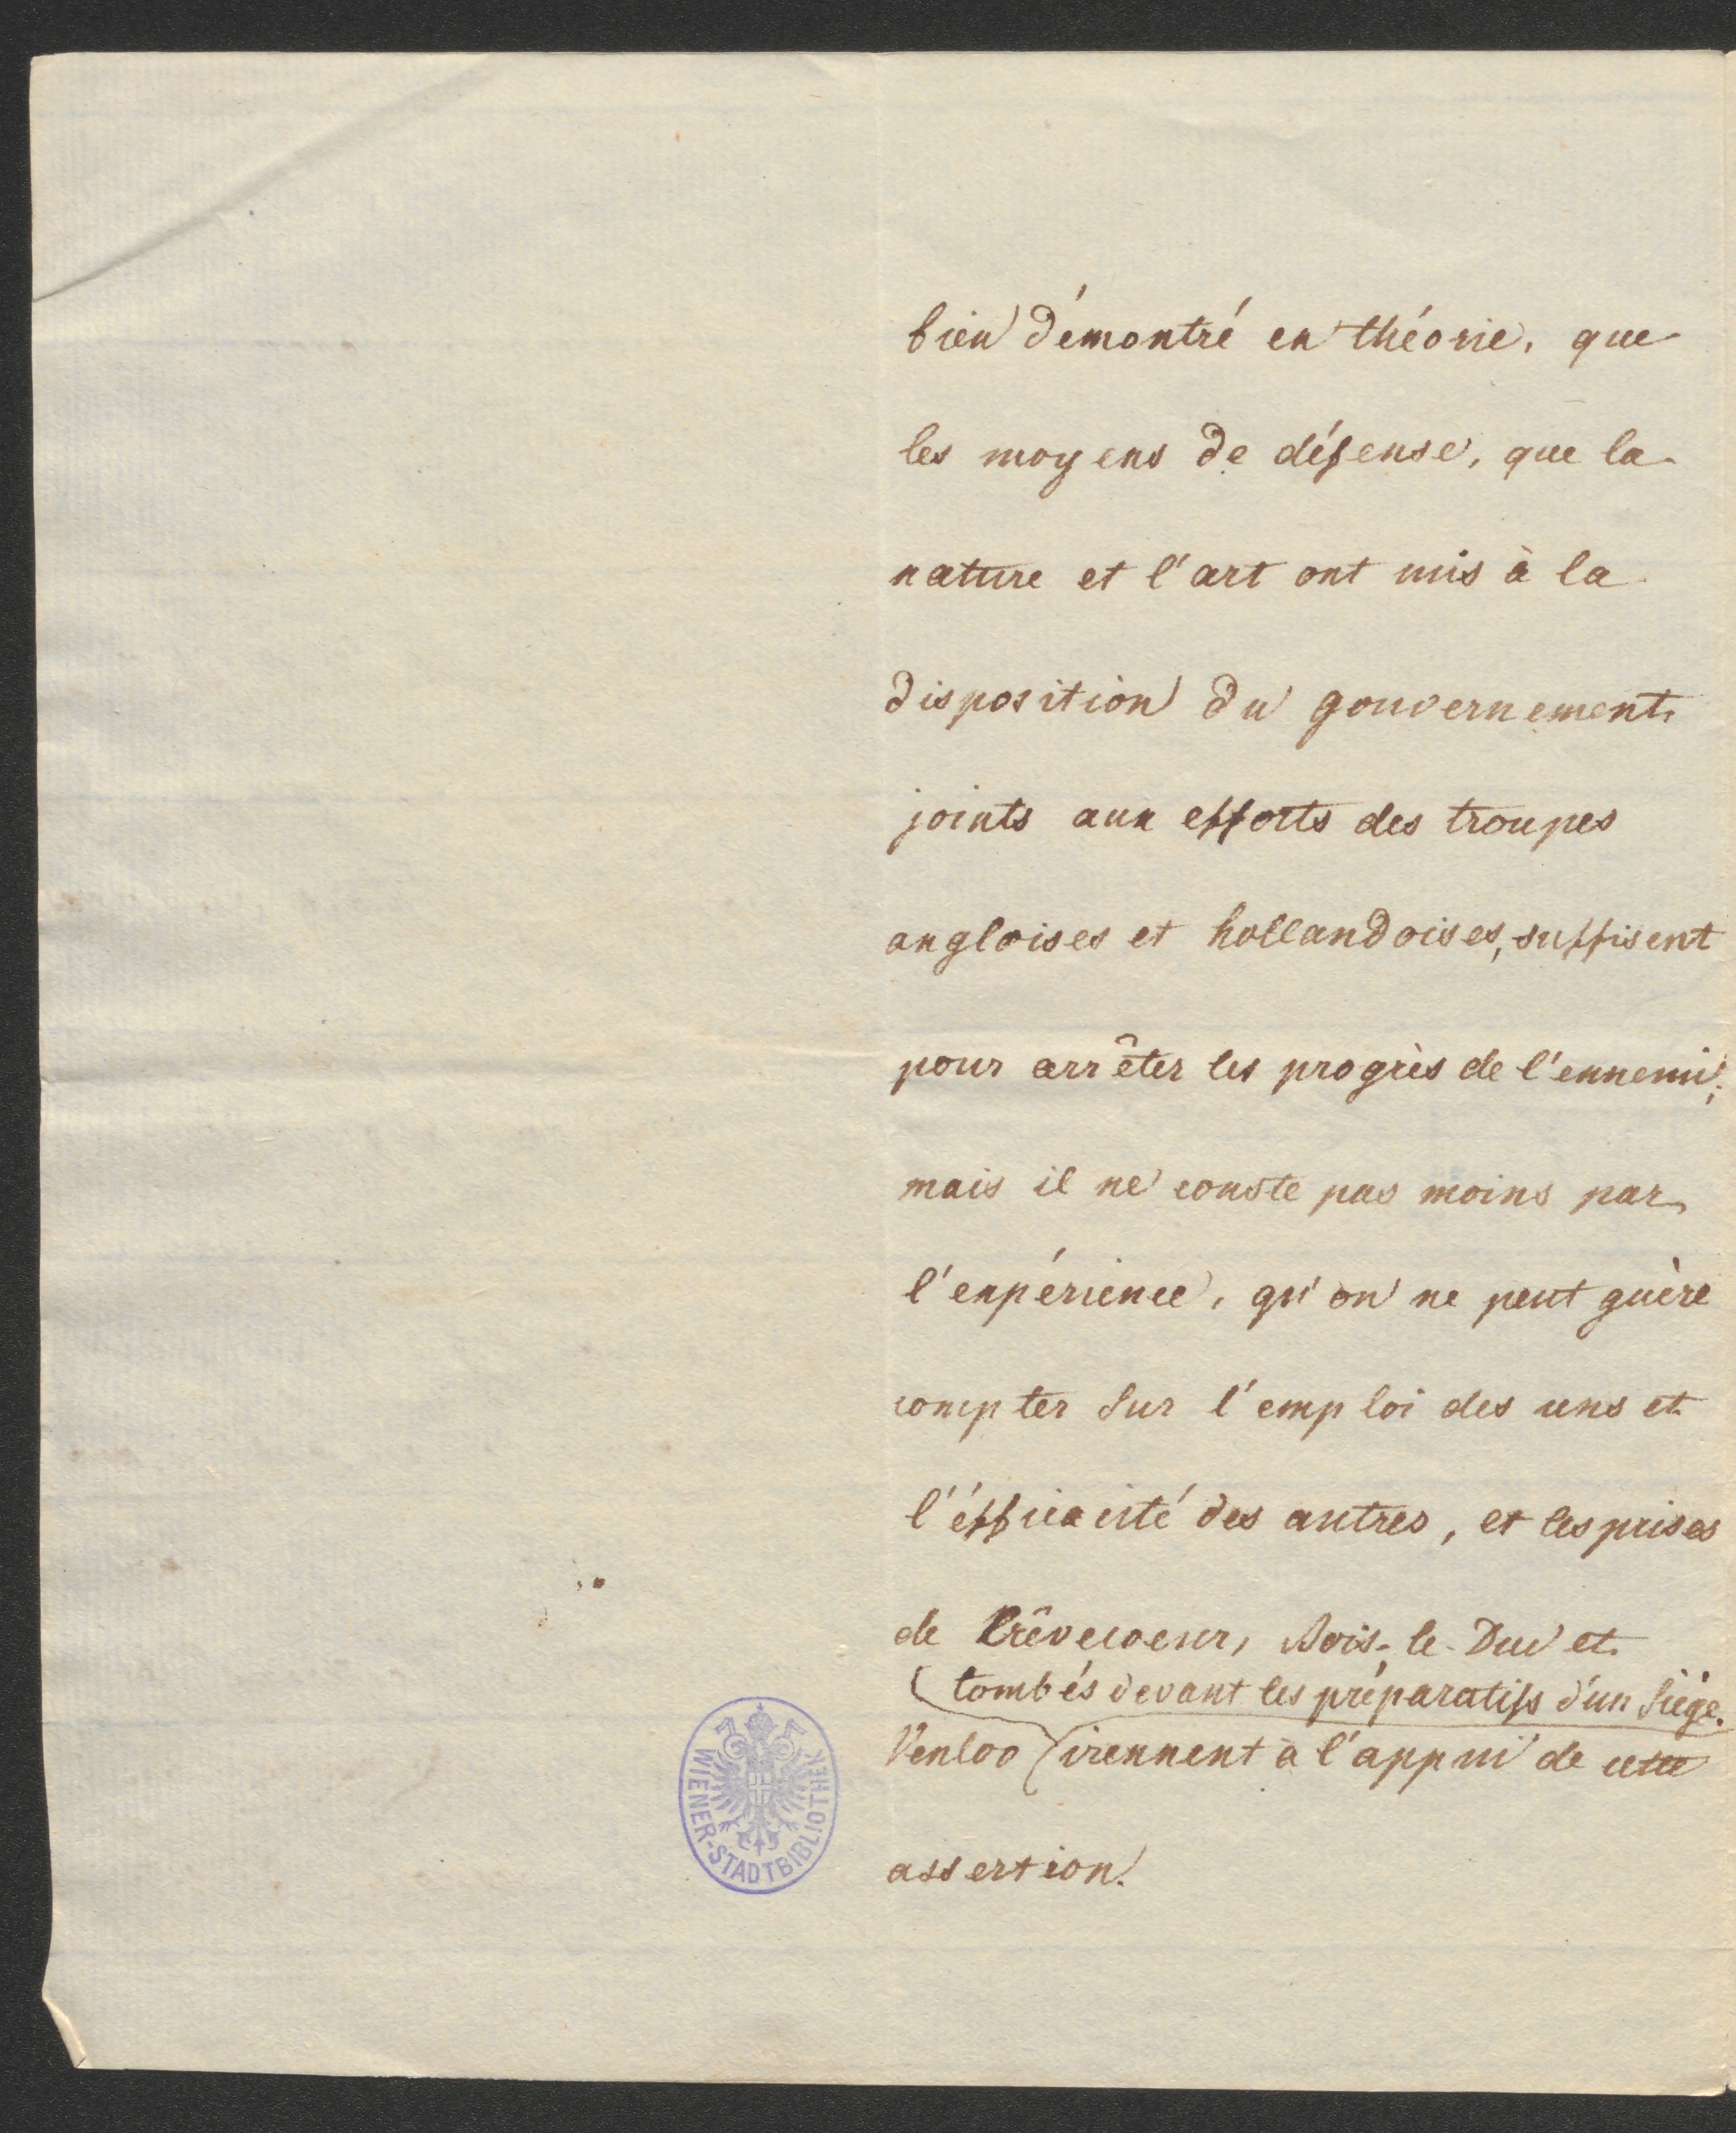 bien démontré en théorie, que
les moyens de défense, que la
nature et l'art ont mis à la
disposition du gouvernement,
joints aux efforts des troupes
angloises et hollandoises, suffisent
pour arrêter les progrès de l'ennemi;
mais il ne conste pas moins par
l'expérience, qu'on ne peut guère
compter sur l'emploi des uns et
l'éfficacité des autres, et les prises
de Crêvecoeur, Bois-le-Duc et
tombés devant les préparatifs d'un siège.
Venloo viennent à l'appui de cette
assertion.
WIENER-STADTBIBLIOTHEK